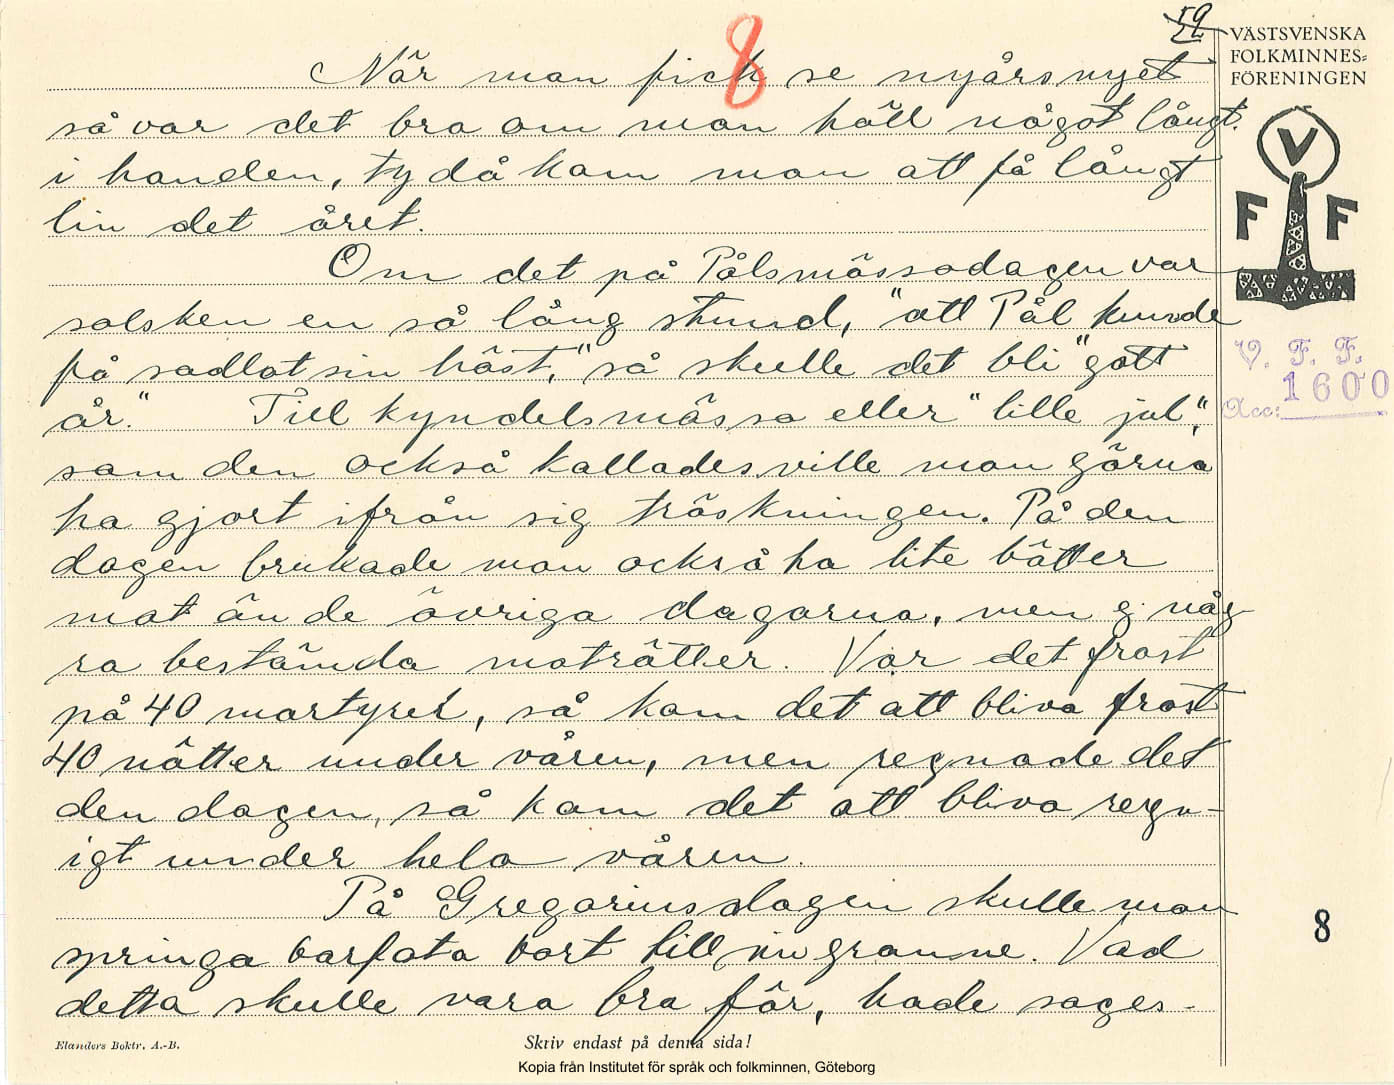 8
VÄSTSVENSKA
FOLKMINNES-
FÖRENINGEN
V
F F
V. F. F.
Acc: 1600
När man fick se nyårsnyet
så var det bra om man höll något långt
i handen, ty då kom man att få långt
lin det året.
Om det på Pålsmässodagen var
solsken en så lång stund, "att Pål kunde
få sadlat sin häst," så skulle det bli "gott
år." Till kyndelsmässa eller "lille jul,"
som den också kallades ville man gärna
ha gjort ifrån sig tröskningen. På den
dagen brukade man också ha lite bätter
mat än de övriga dagarna, men ej någ
ra bestämda maträtter. Var det frost
på 40 martyrer, så kom det att bliva frost
40 nätter under våren, men regnade det
den dagen, så kom det att bliva regn-
igt under hela våren.
På Gregoriusdagen skulle man
springa barfota bort till sin granne. Vad
detta skulle vara bra för, hade sages-
8
Elanders Boktr. A.-B.
Skriv endast på denna sida!
Kopia från Institutet för språk och folkminnen, Göteborg